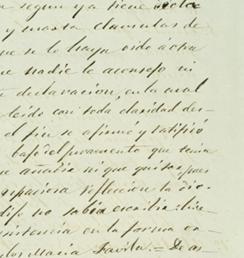 n segun ya tiene
y mas ta clamulas de
ue se le haya oido á otra
ue nadie le aconsejo ni
declaracion, en la cual
leido con toda claridad des-
el fin se afirmó y ratificó
bajo el juramento que tenia
e añadir ni que quitar, pues
reflecion la dic-
no sabia escribir: hice
sistencia en la forma or-
Maria Davila. = De as-